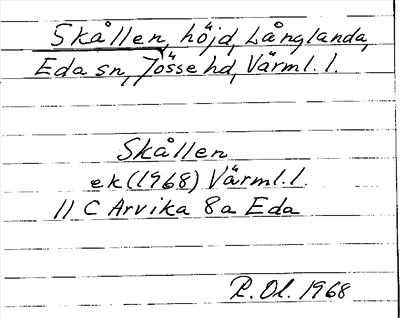 Skållen, höjd, Långlanda,
Eda sn, Jösse hd, Värml. l.
Skållen
ek (1968) Värml. l.
11 C Arvika 8a Eda
R. Ol. 1968